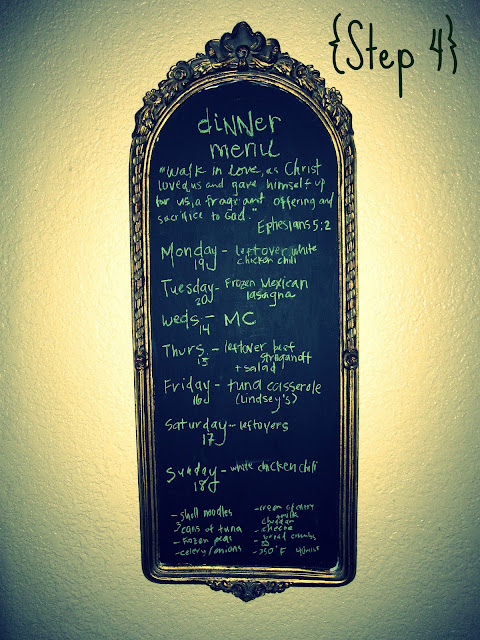 {Step 4}
diNNer
menu
"Walk in love, as Christ
loved us and gave himself up
for us, a fragrant offering and
sacrifice to God."
Ephesians 5:2
Monday - leftover white
19 chicken chili
Tuesday - Frozen Mexican
20 lasagna
Weds. - MC
14
Thurs. - leftover beef
15 Stroganoff
+ salad
Friday - tuna casserole
16 (Lindsey's)
Saturday - leftovers
17
Sunday - white chicken chili
18
- shell noodles
3 cans of tuna
- Frozen peas
- celery/onions
- cream of celery
milk
cheddar
- cheese
- bread crumbs
- 350°F 40 mins